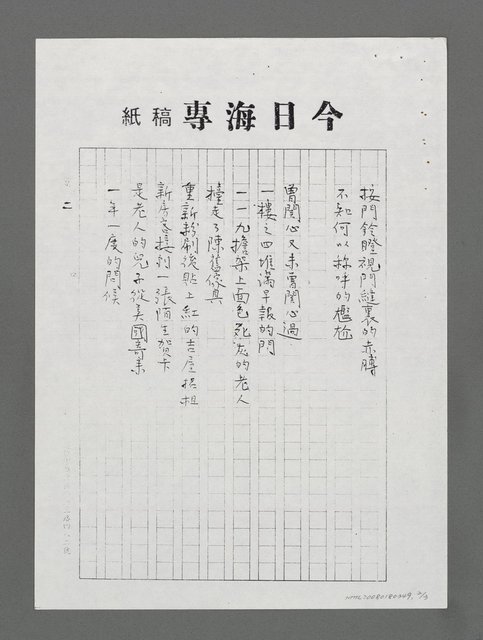 今日海專 稿紙
按門鈴瞪視門縫裏的赤膊
不知何以称呼的尷尬
曾関心又未曾関心過
一樓之四堆滿早報的門
一一九擔架上面色死灰的老人
擡走了陳舊傢具
重新粉刷後貼上紅的吉屋招租
新房客接到一張陌生賀卡
是老人的兒子從美國寄來
一年一度的問候
二
NMTL20080180249, 2/3